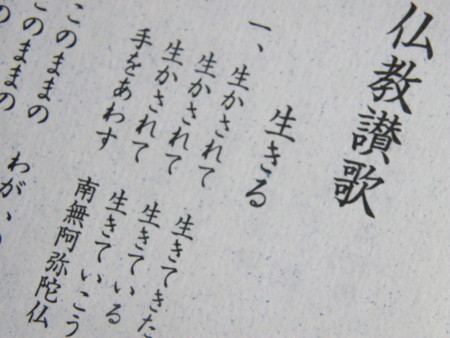 仏教讃歌
生きる
一、生かされて 生きてきた
生かされて 生きている
生かされて 生きていこう
手をあわす 南無阿弥陀仏
このままの わがい
このままの